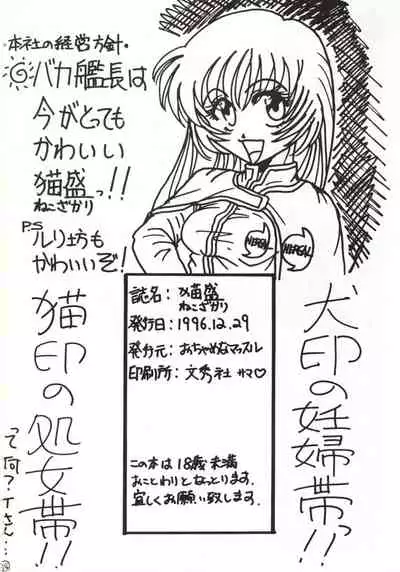 本社の経営方針・
バカ艦長は
今がとっても
かわいい
猫盛っ!!
ねこざかり
P.S
ルリ坊も
かわいいぞ!
NERGAL
NERGAL
誌名：猫盛
ねこざかり
発行日：1996.12.29
発行元：おちゃめなマッスル
印刷所：文秀社 サマ♡
この本は18歳未満
おことわりとなっとります.
宜しくお願い致します.
犬印の妊婦帯っ!!
猫印の処女帯!!
って何?Tさん…